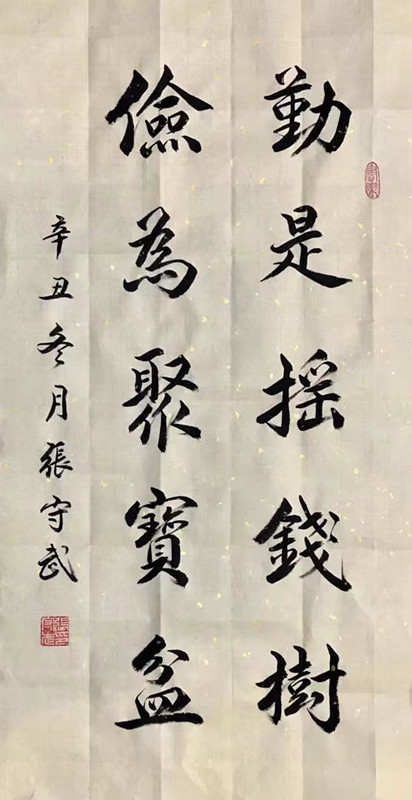 勤是摇錢樹
儉為聚寶盆
辛丑冬月張守武